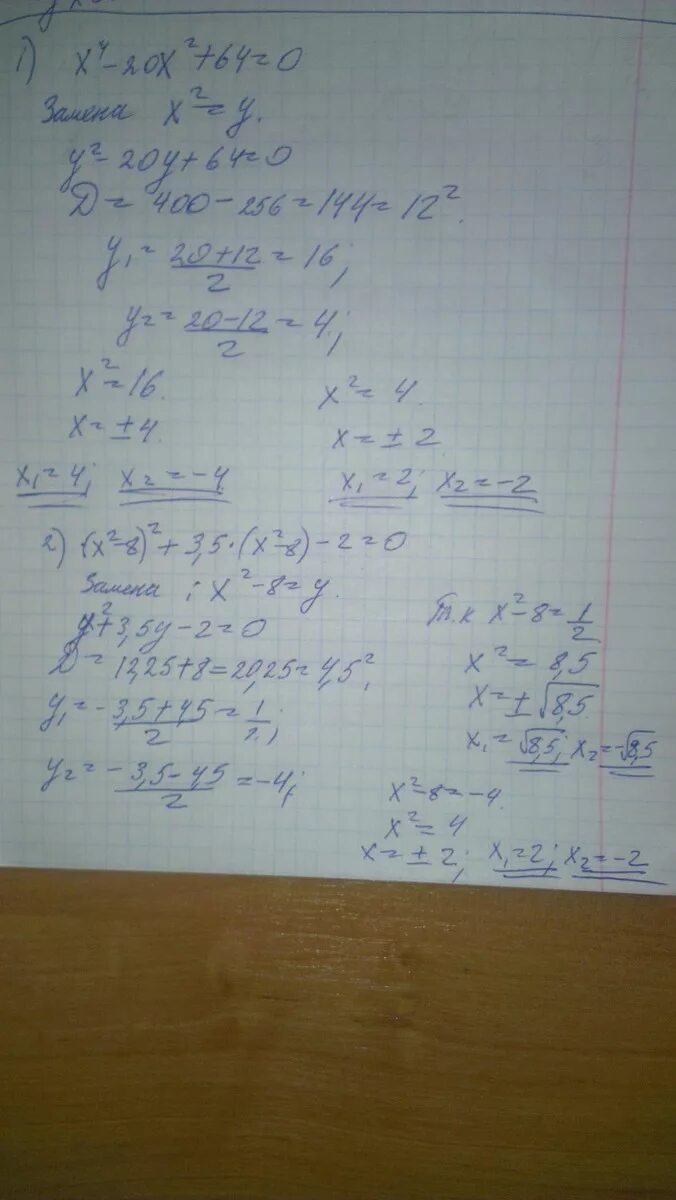 1) x⁴-20x²+64=0
Замена x²=y.
y²-20y+64=0
D=400-256=144=12².
y₁=20+12/2=16;
y₂=20-12/2=4;
x²=16. x²=4.
x=±4. x=±2
x₁=4; x₂=-4 x₁=2; x₂=-2
2) (x²-8)²+3,5·(x²-8)-2=0
Замена: x²-8=y.
y²+3,5y-2=0
D=12,25+8=20,25=4,5²;
y₁=-3,5+4,5/2=1/2;
y₂=-3,5-4,5/2=-4;
Т.к x²-8=1/2
x²=8,5
x=±√8,5
x₁=√8,5; x₂=-√8,5
x²-8=-4.
x²=4
x=±2; x₁=2; x₂=-2